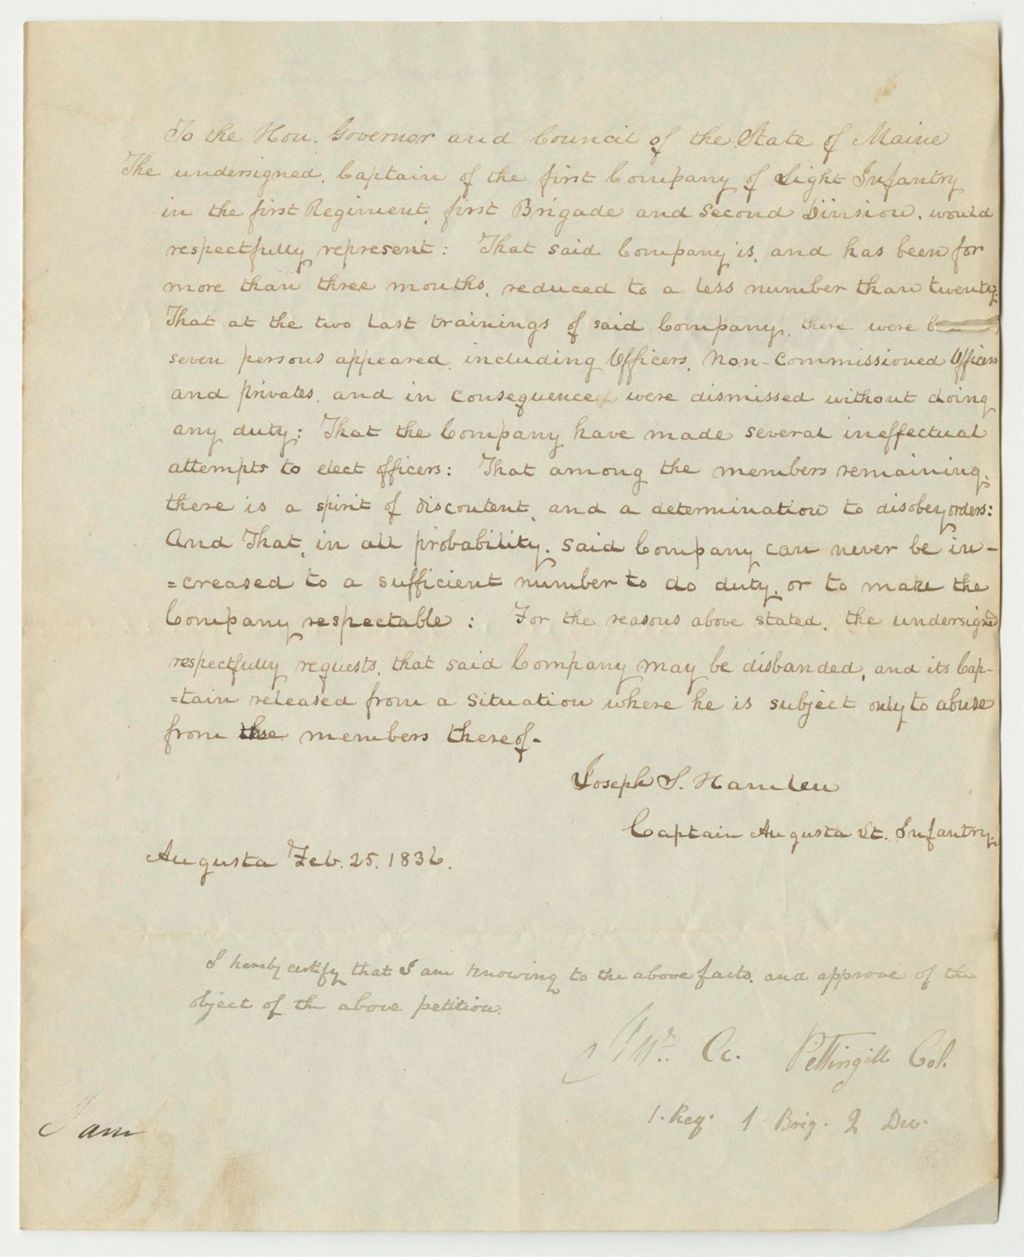 To the Hon. Governor and Council of the State of Maine
The undersigned, Captain of the first Company of Light Infantry
in the first Regiment, first Brigade and Second Division, would
respectfully represent: That said Company is, and has been for
more than three months, reduced to a less number than twenty.
That at the two last trainings of said Company, there were
seven persons appeared, including Officers, Non-Commissioned Officers
and privates, and in consequence were dismissed without doing
any duty: That the Company have made several ineffectual
attempts to elect officers: That among the members remaining,
there is a spirit of discontent, and a determination to disobey orders:
And That, in all probability, said Company can never be in-
=creased to a sufficient number to do duty, or to make the
Company respectable: For the reasons above stated, the undersigned
respectfully requests, that said Company may be disbanded, and its Cap-
=tain released from a situation where he is subject only to abuse
from the members thereof-
Joseph S. Hamlen
Captain Augusta Lt. Infantry.
Augusta Feb. 25. 1836.
I hereby certify that I am knowing to the above facts, and approve of the
object of the above petition.
Pettingill Col.
1. Reg. 1 Brig. 2 Dev.
I am